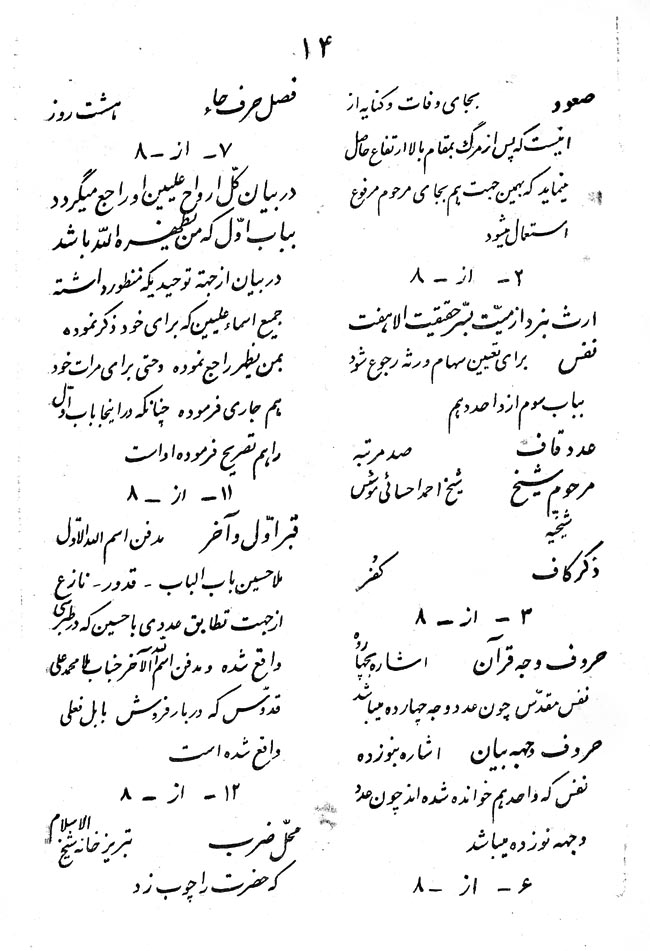 ۱۴
صعود بجای وفات و کنایه از
اینست که پس از مرگ بمقام بالا ارتفاع حاصل
مینماید که بهمین جهت هم بجای مرحوم مرفوع
استعمال میشود
۲- از - ۸
ارث بنر داز میت بسر حقیقت الا هفت
نفس برای تعیین سهام ورثه رجوع شود
بباب سوم از واحد دهم
عدد قاف صد مرتبه
مرحوم شیخ شیخ احمد احسائی مؤسس
شیخیه
ذکر کاف کفر
۳ - از - ۸
حروف وجه قرآن اشاره بچهارده
نفس مقدس چون عدد وجه چهارده میباشد
حروف وجهه بیان اشاره بنوزده
نفس که واحد هم خوانده شده اند چون عدد
وجهه نوزده میباشد
۶ - از - ۸
فصل حرف حاء هشت روز
۷- از - ۸
در بیان کل ارواح علیین او راجع میگردد
بباب اول که من یظهره الله باشد
در بیان از جهة توحیدیکه منظور داشته
جمیع اسماء علیین که برای خود ذکر نموده
بمن یظهر راجع نموده وحتی برای مرات خود
هم جاری فرموده چنانکه در اینجا باب اول
را هم تصریح فرموده اوست
۱۱- از - ۸
قبر اول و آخر مدفن اسم الله الاول
ملا حسین باب الباب - قدور - نازع
از جهت تطابق عددی با حسین که در طبرسی
واقع شده و مدفن اسم الله الآخر جناب ملا محمد علی
قدوس که در بارفروش بابل فعلی
واقع شده است
۱۲- از - ۸
محل ضرب تبریز خانه شیخ الاسلام
که حضرت را چوب زد